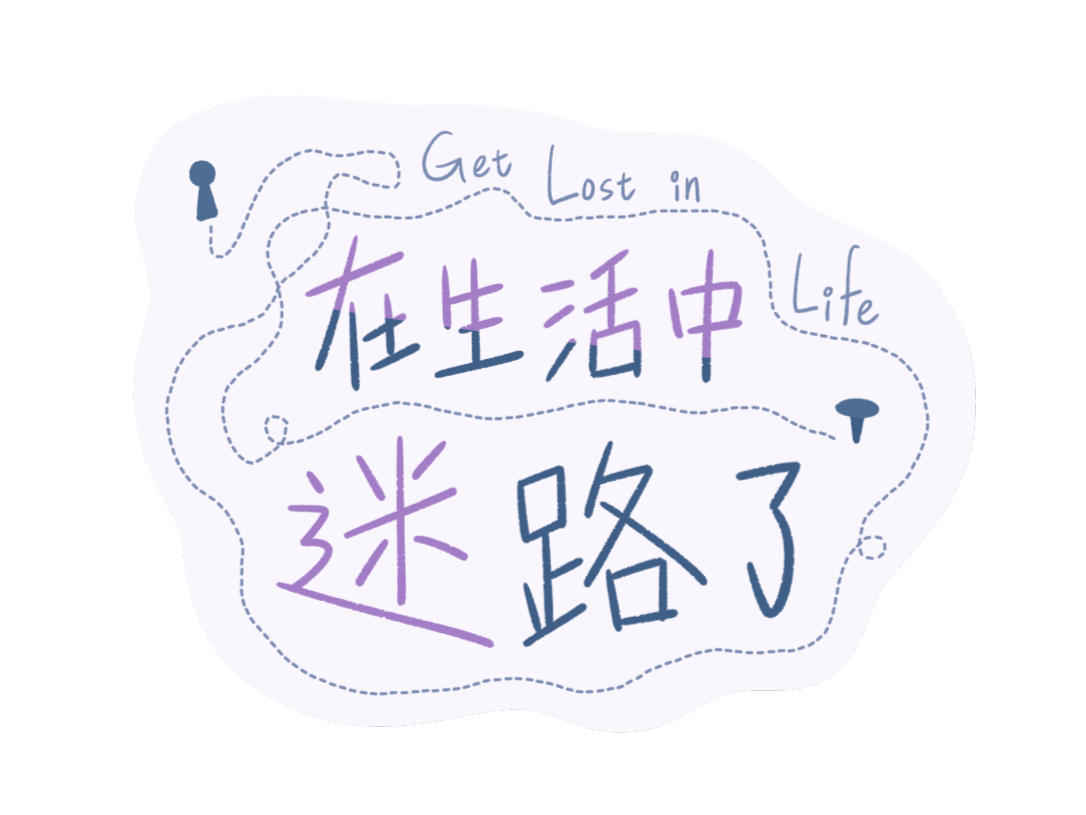 Get Lost in Life
在生活中
迷路了